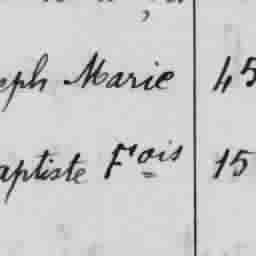 eph Marie 45
aptiste Fois 15